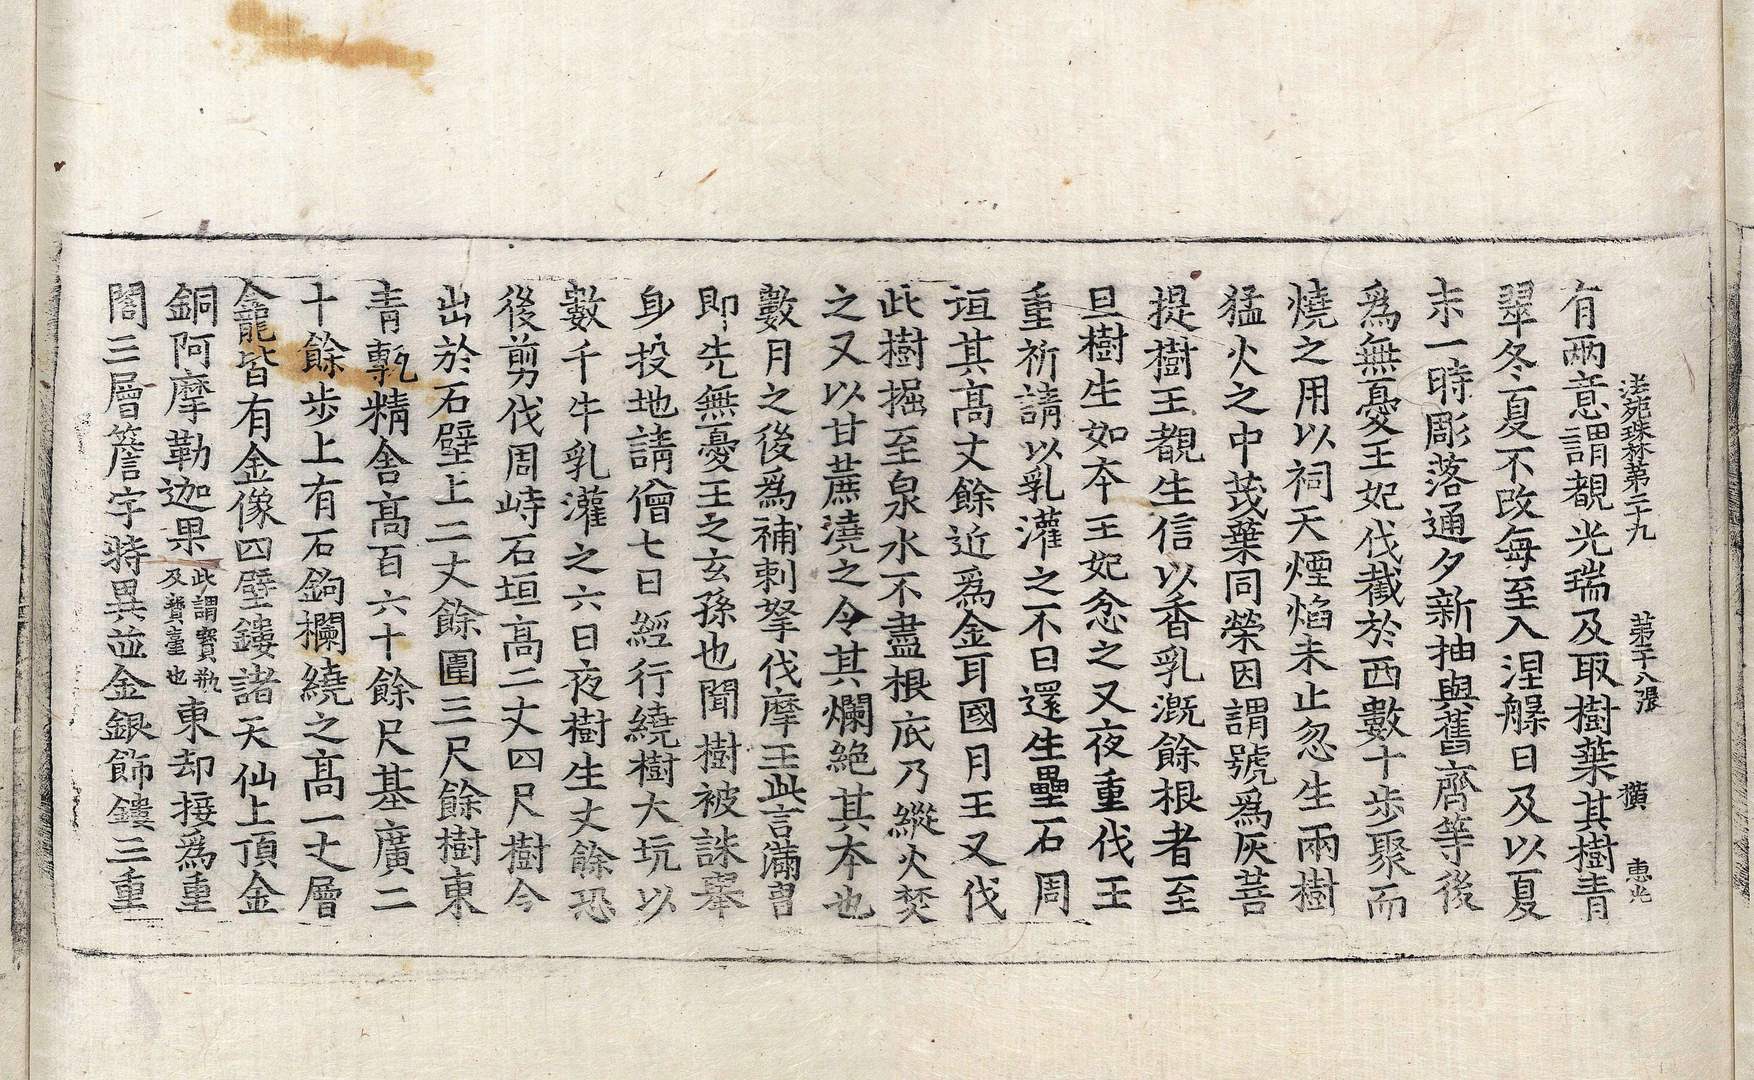 法苑珠林第二十九 第二十八張 橫 惠光
有兩意謂覩光瑞及取樹葉其樹青
翠冬夏不改每至入涅槃日及以夏
末一時彫落通夕新抽與舊齊等後
爲無憂王妃伐截於西數十步聚而
燒之用以祠天煙焰未止忽生兩樹
猛火之中茂葉同榮因謂號爲灰菩
提樹王覩生信以香乳溉餘根者至
旦樹生如本王妃忿之又夜重伐王
重祈請以乳灌之不日還生壘石周
垣其高丈餘近爲金耳國月王又伐
此樹掘至泉水不盡根底乃縱火焚
之又以甘蔗澆之令其爛絶其本也
數月之後爲補剌拏伐摩王此言滿胄
即先無憂王之玄孫也聞樹被誅舉
身投地請僧七日經行繞樹大坑以
數千牛乳灌之六日夜樹生丈餘恐
後剪伐周峙石垣高二丈四尺樹今
出於石壁上二丈餘圍三尺餘樹東
青甎精舍高百六十餘尺基廣二
十餘步上有石鉤欄繞之高一丈層
龕皆有金像四壁鏤諸天仙上頂金
銅阿摩勒迦果此謂寶瓶及寶臺也東却接爲重
閣三層簷宇特異並金銀飾鏤三重